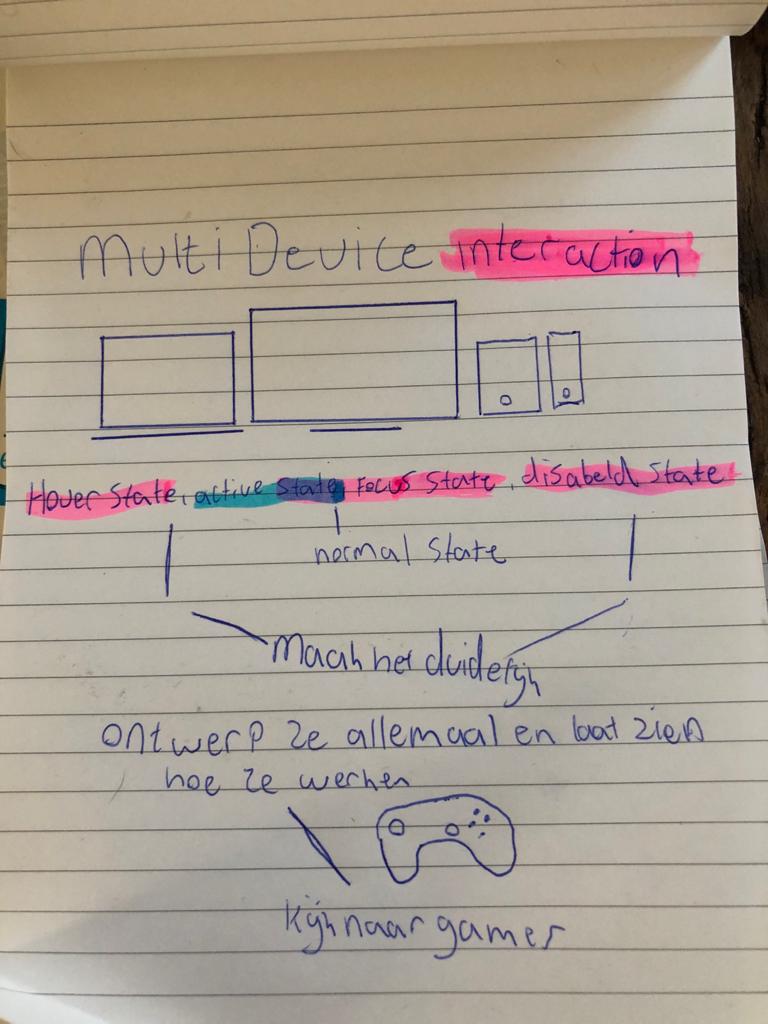 Multi Device interaction
Hover State, active State, Focus State, disabeld State
normal State
Maak het duidelijk
Ontwerp ze allemaal en laat zien
hoe ze werken
Kijk naar games